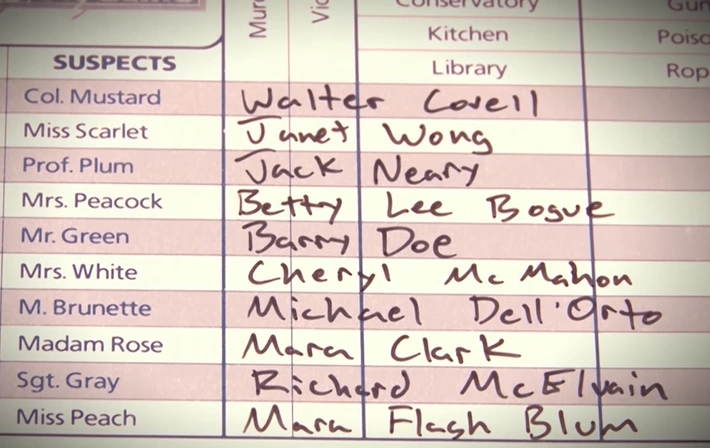 Conservatory
Kitchen Poiso
SUSPECTS Library Rop
Col. Mustard Walter Covell
Miss Scarlet Janet Wong
Prof. Plum Jack Neary
Mrs. Peacock Betty Lee Bogue
Mr. Green Barry Doe
Mrs. White Cheryl McMahon
M. Brunette Michael Dell'Orto
Madam Rose Mara Clark
Sgt. Gray Richard McElvain
Miss Peach Mara Flash Blum